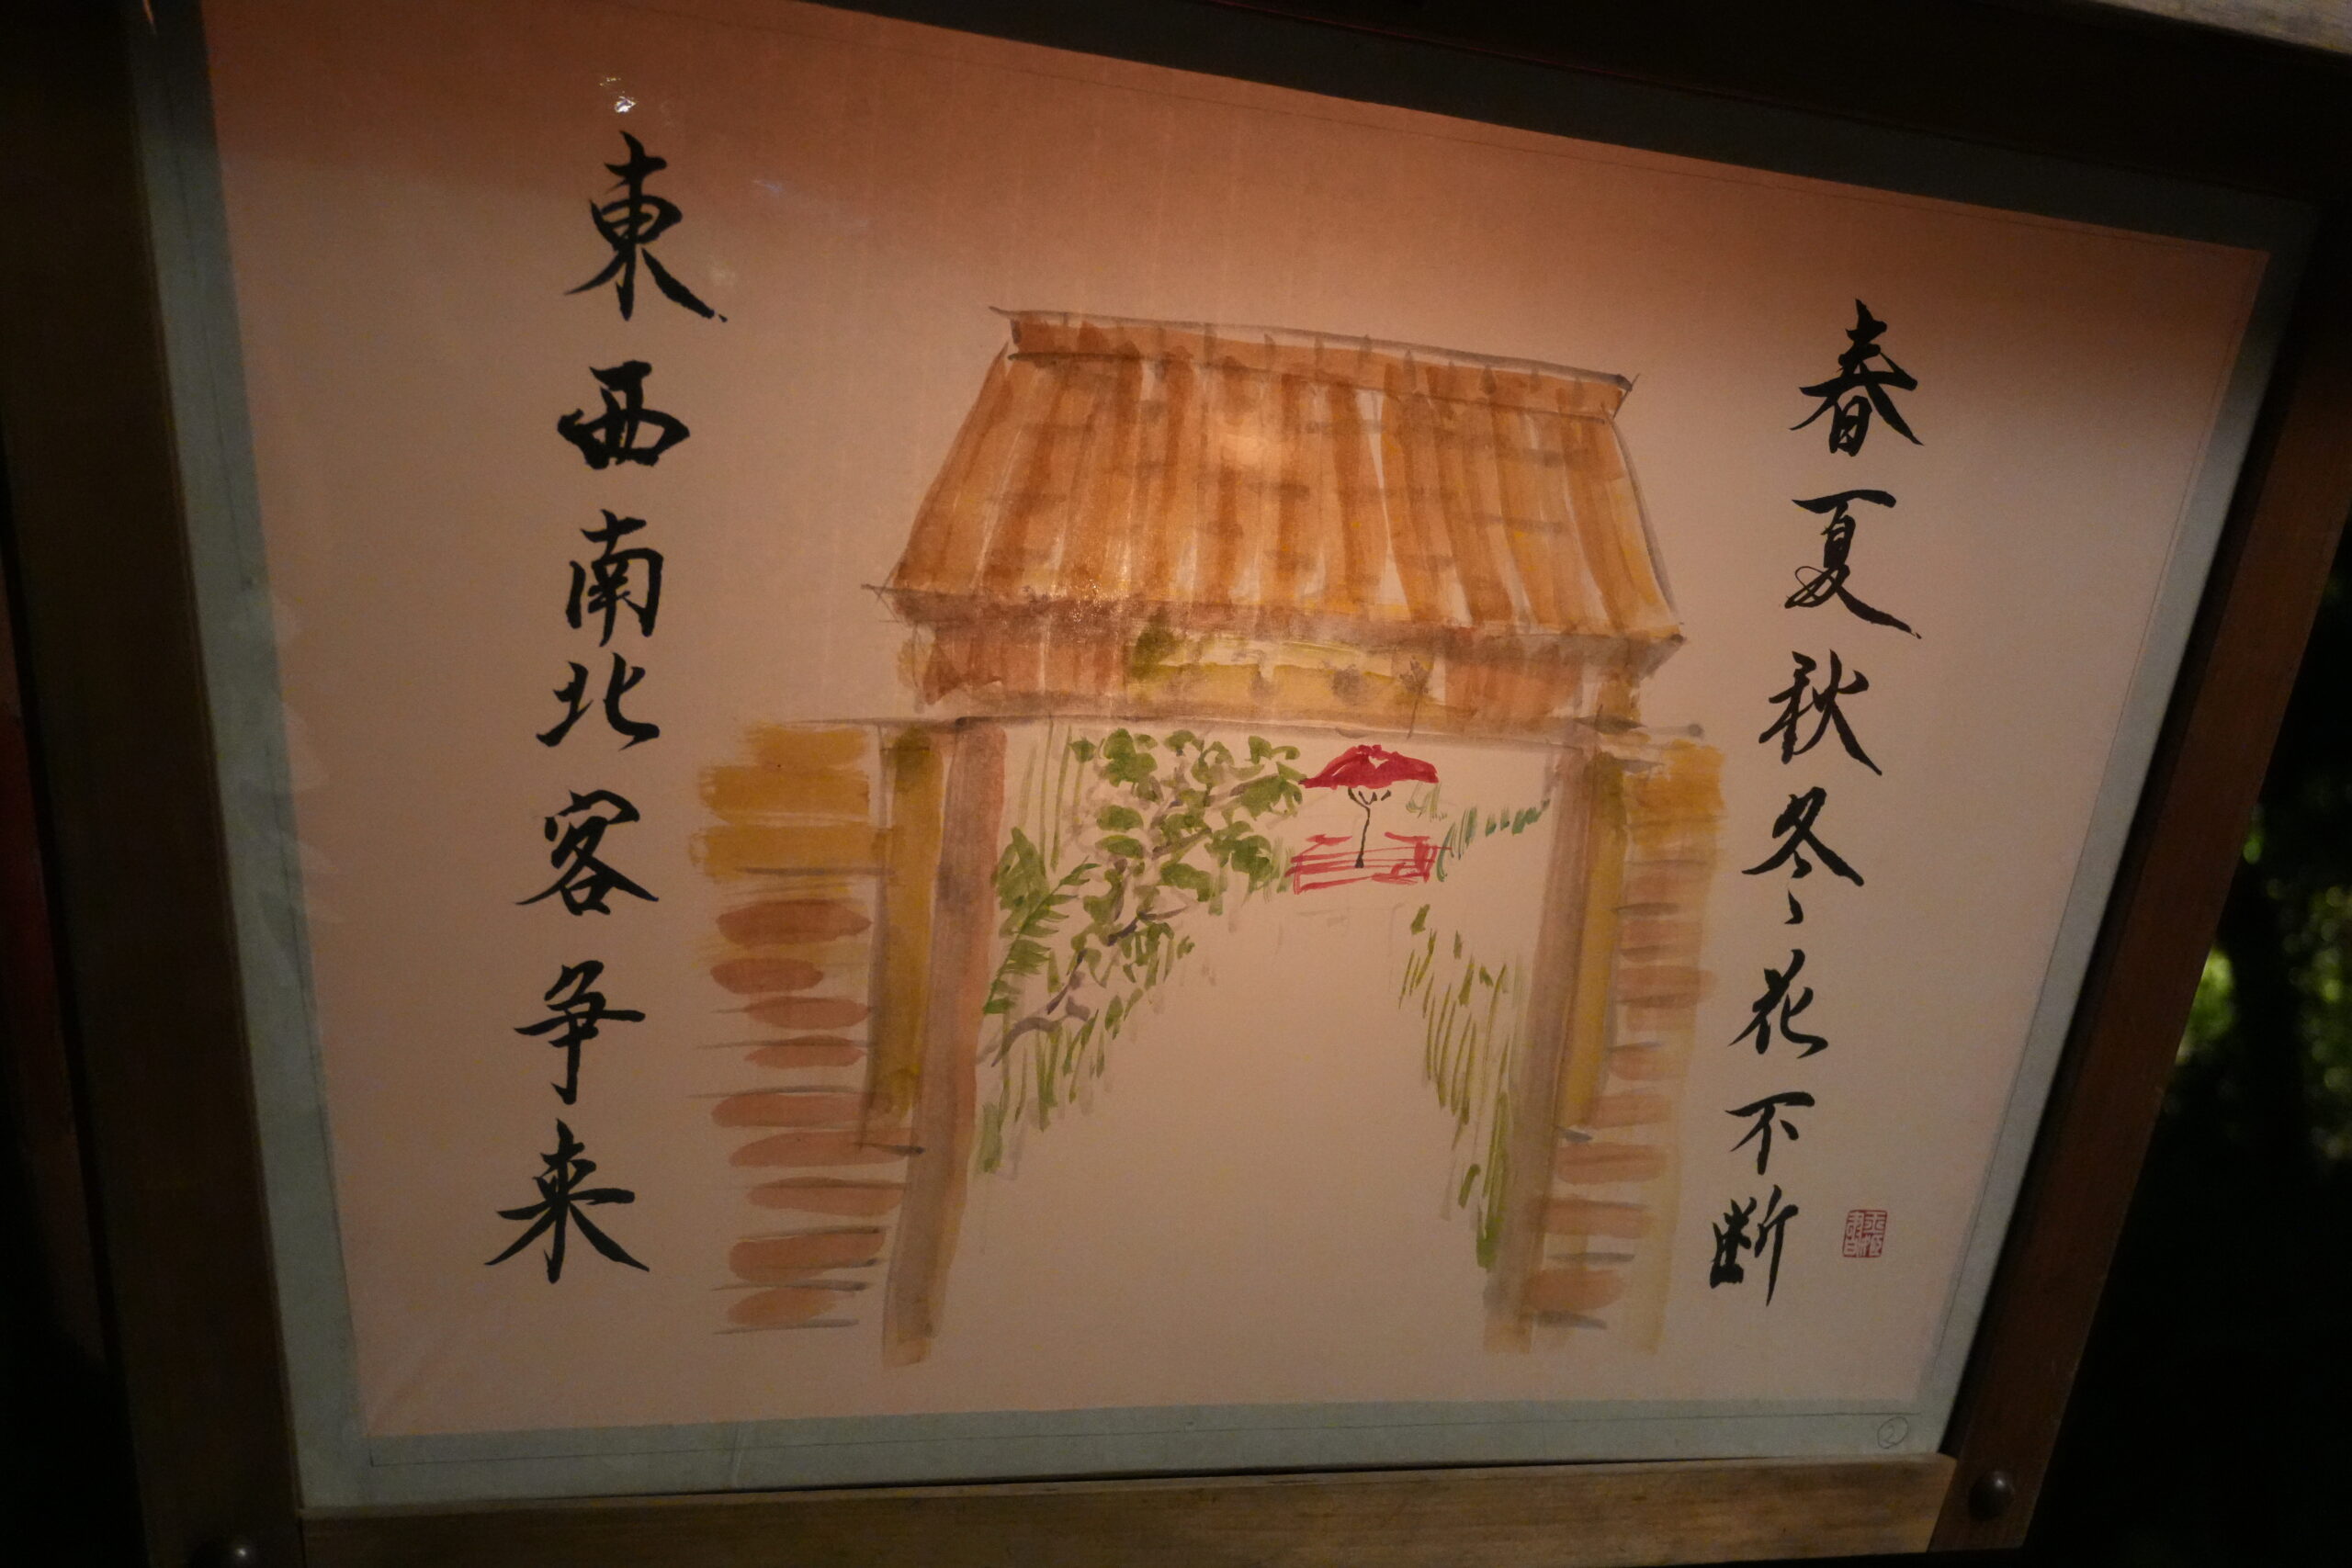 春夏秋冬花不断
東西南北客争来
②